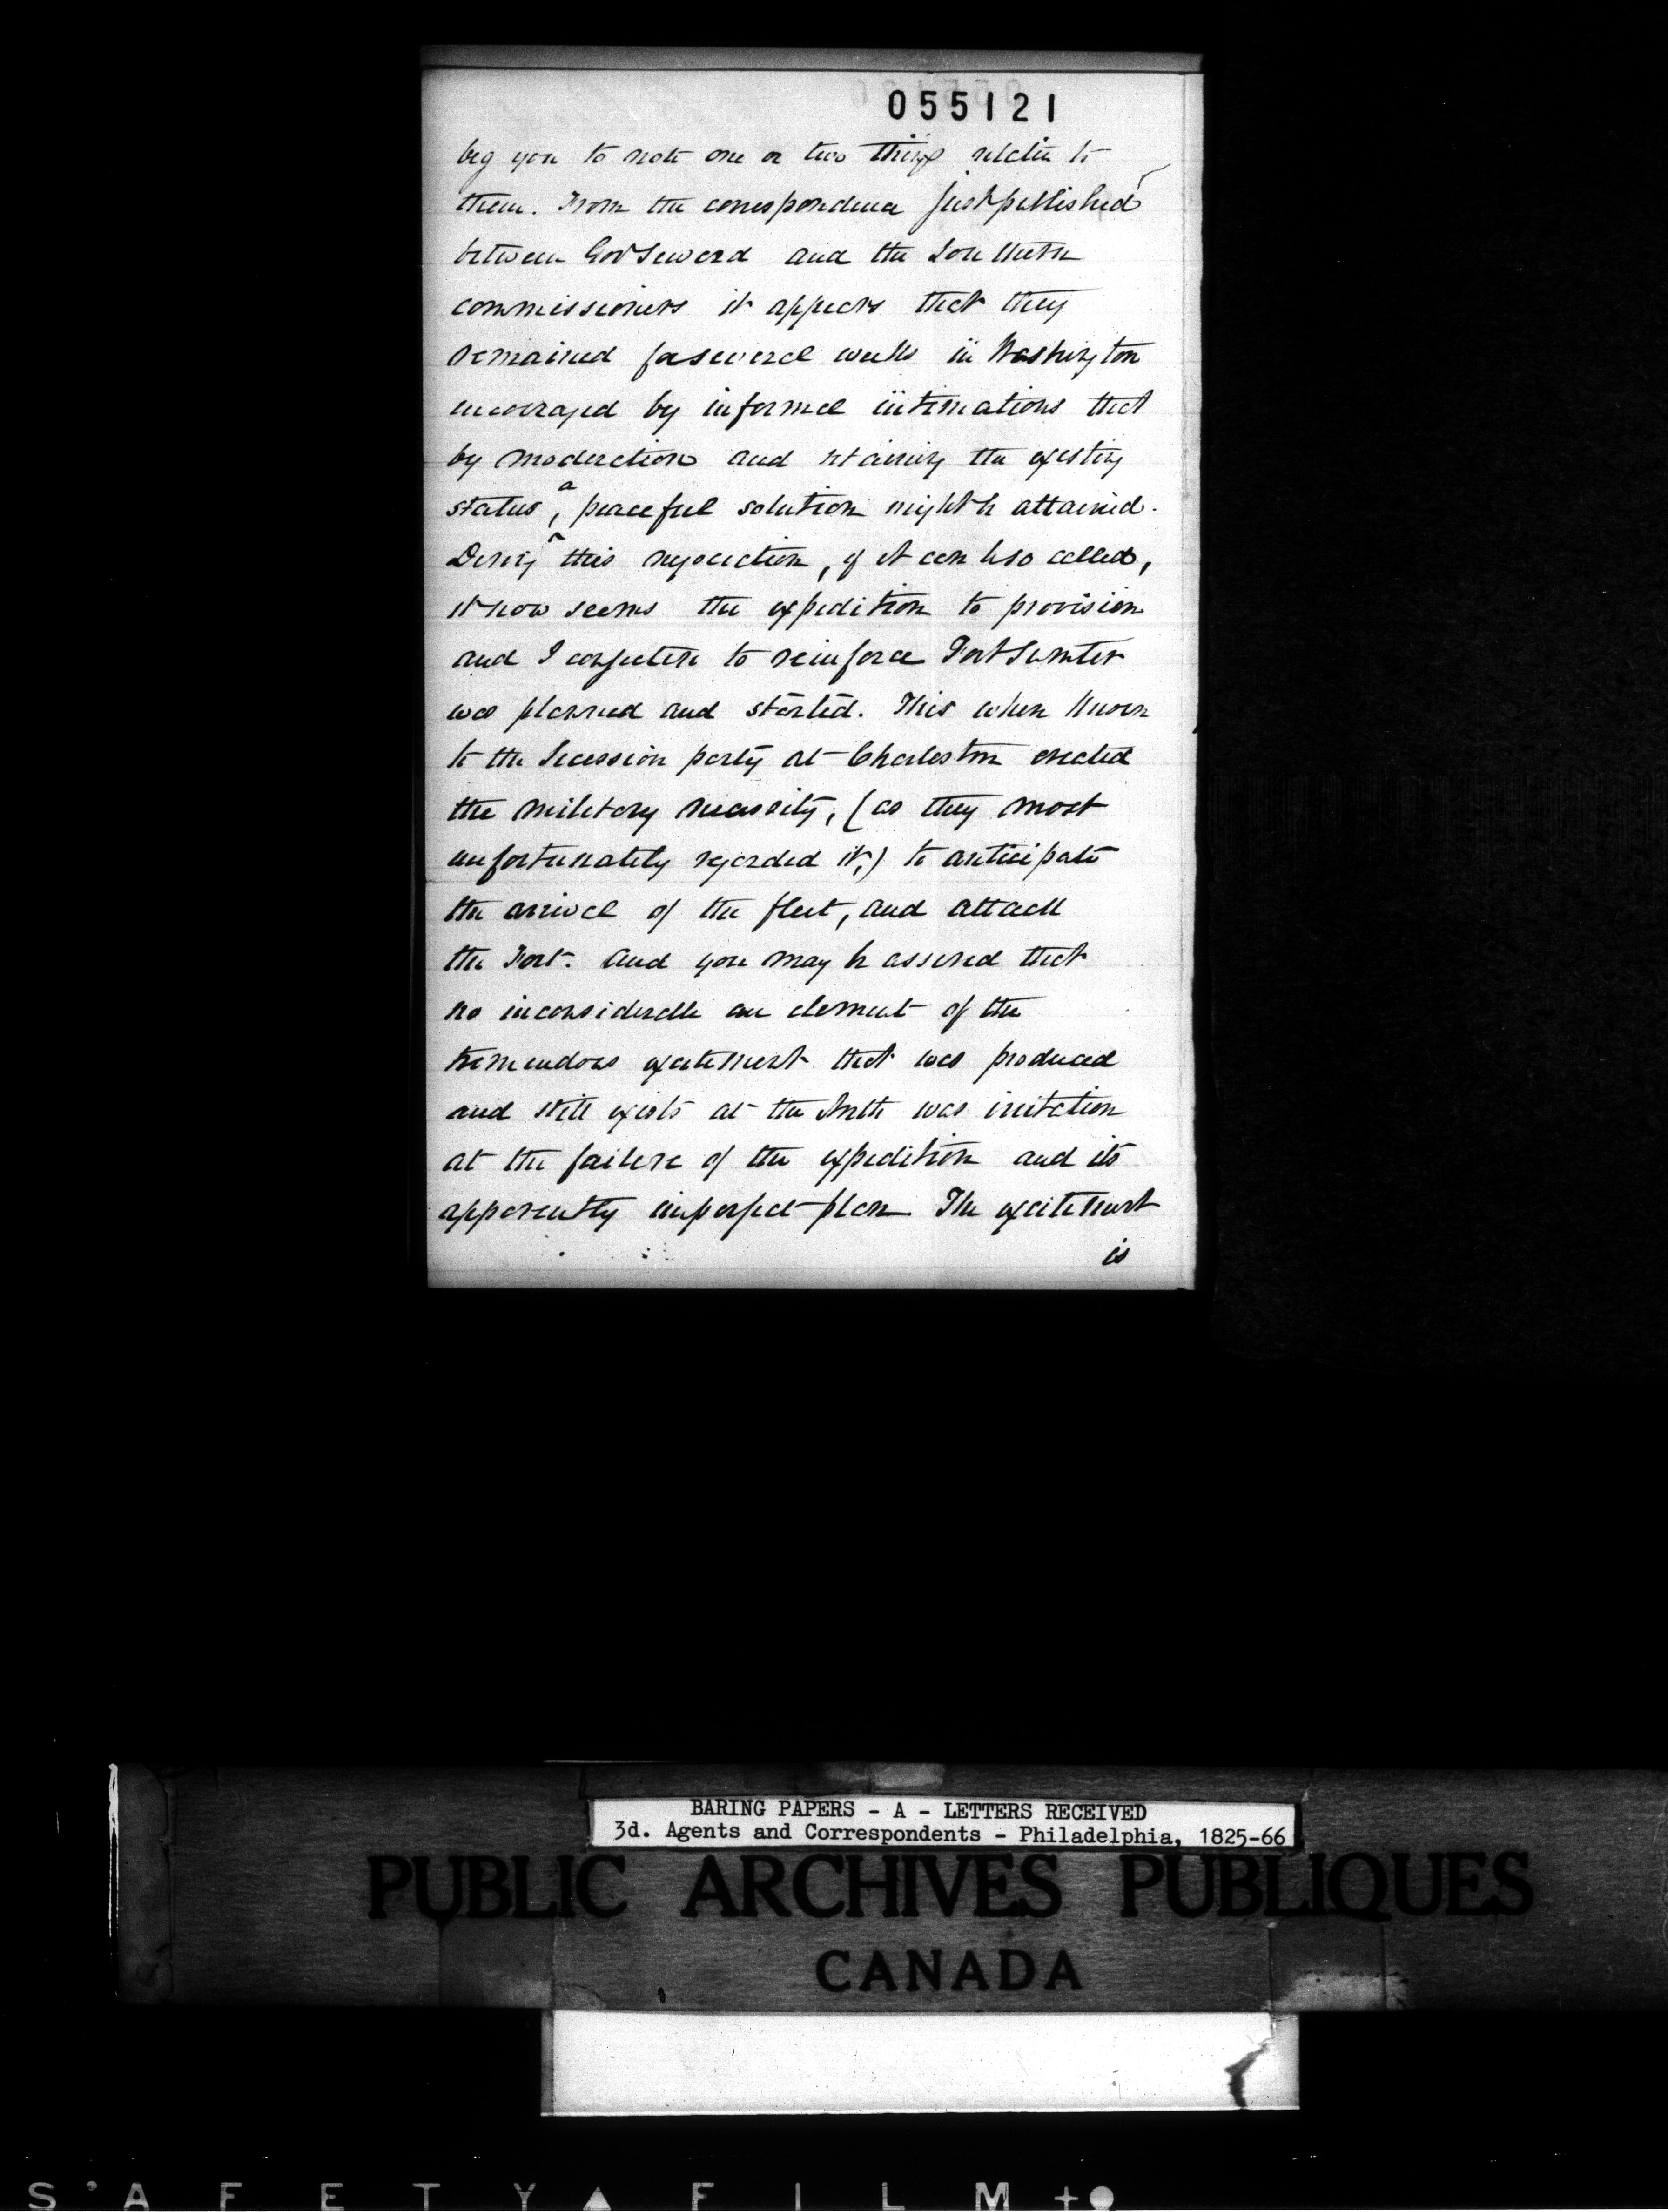 055121
beg you to note one or two things relative to
them. From the correspondence just published
between Govr Seward and the Southern
commissioners it appears that they
remained for several weeks in Washington
encouraged by informal intimations that
by moderation and retaining the existing
status, a peaceful solution might be attained.
During this negociation, if it can be so called,
it now seems the expedition to provision
and I conjecture to reinforce Fort Sumter
was planned and started. This when known
to the Secession party at Charleston created
the military necessity, (as they most
unfortunately regarded it,) to anticipate
the arrival of the fleet, and attack
the Fort. And you may be assured that
no inconsiderable an element of the
tremendous excitement that was produced
and still exists at the North was irritation
at the failure of the expedition and its
apparently imperfect plan. The excitement
is
BARING PAPERS - A - LETTERS RECEIVED
3d. Agents and Correspondents - Philadelphia, 1825-66
PUBLIC ARCHIVES PUBLIQUES
CANADA
SAFETY FILM